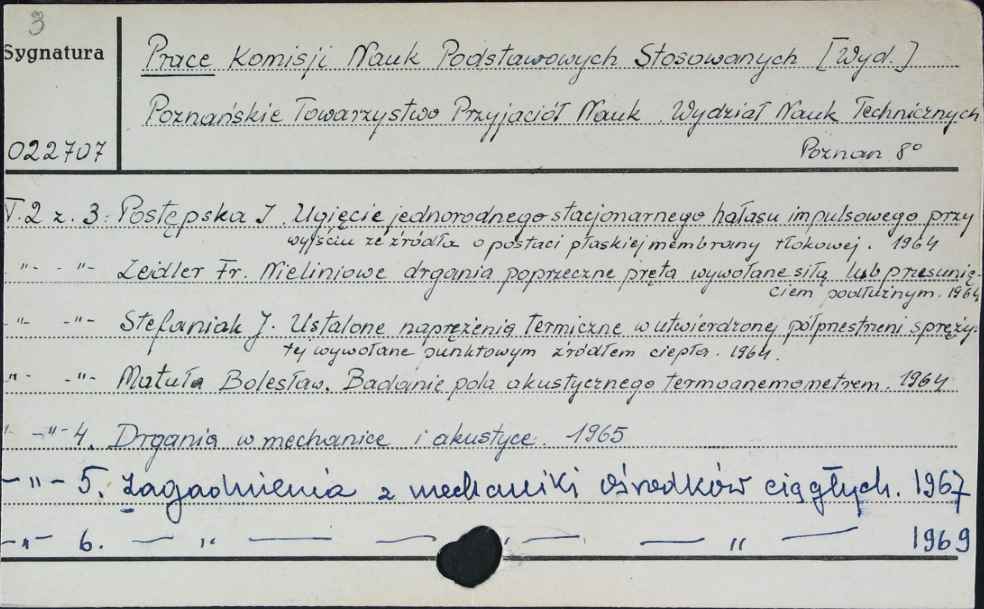 3
Sygnatura
Prace Komisji Nauk Podstawowych Stosowanych [Wyd.]
Poznańskie Towarzystwo Przyjaciół Nauk. Wydział Nauk Technicznych
022707
Poznan 8°
T.2 z. 3: Postępska I. Ugięcie jednorodnego stacjonarnego hałasu impulsowego przy
wyjściu ze źródła o postaci płaskiej membrany tłokowej. 1964
-"- - -"- Zeidler Fr. Nieliniowe drgania poprzeczne pręta wywołane siłą lub przesunię-
ciem podłużnym. 1964
-"- -"- Stefaniak J. Ustalone naprężenia termiczne w utwierdzonej półprzestrzeni spręży-
tej wywołane punktowym źródłem ciepła. 1964.
-"- -"- Matuła Bolesław. Badanie pola akustycznego termoanemometrem. 1964
" -"- 4. Drgania w mechanice i akustyce. 1965
-"- 5. Zagadnienia z mechaniki ośrodków ciągłych. 1967
-"- 6. — " — — " — " — 1969